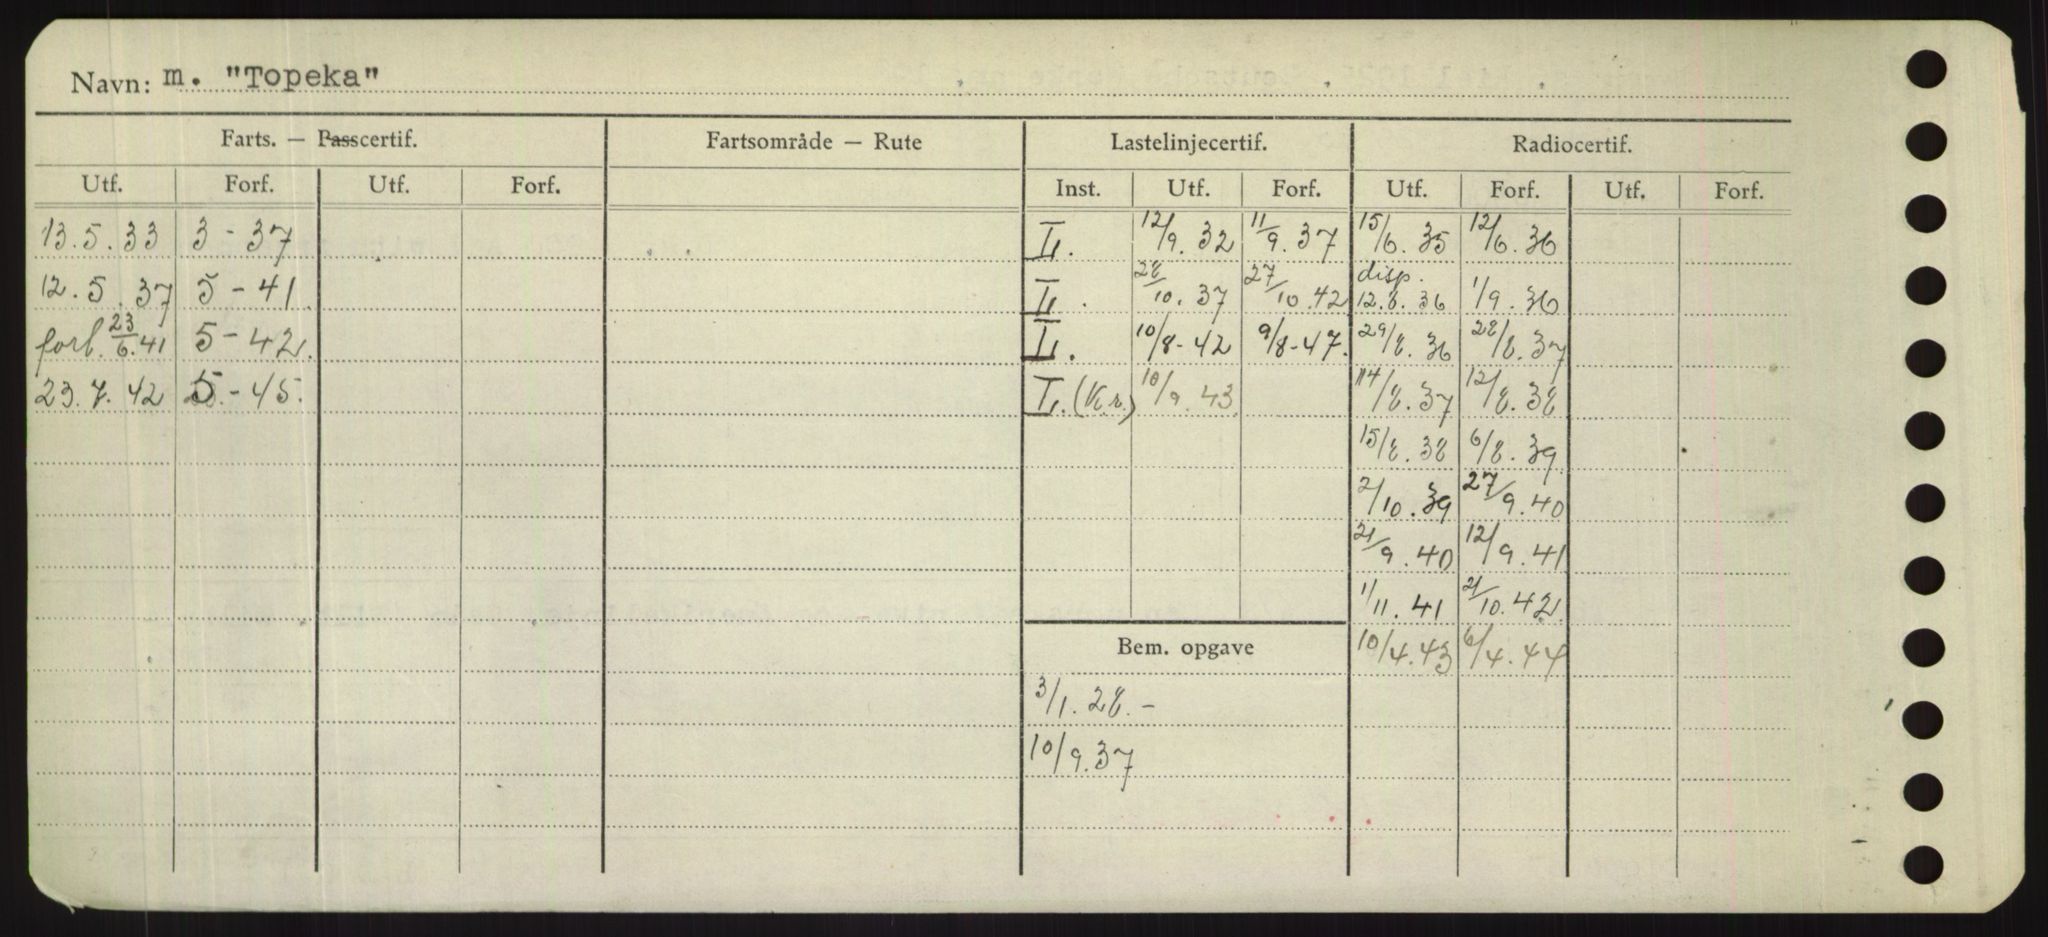 Navn: m. "Topeka"
Farts. — Passcertif. Fartsområde — Rute Lastelinjecertif. Radiocertif.
Utf. Forf. Utf. Forf. Inst. Utf. Forf. Utf. Forf. Utf. Forf.
13.5.33 3-37 L. 12/9.32 11/9.37 15/6.35 12/6.36
12.5.37 5-41 L. 28/10.37 27/10.42 disp. 12.8.36 1/9.36
forl. 23/6.41 5-42. L. 10/8-42 9/8-47. 29/8.36 28/8.37
23.7.42 5.-45. L.(Kr.) 10/9.43 14/8.37 12/8.38
15/8.38 6/8.39
2/10.39 27/9.40
21/9.40 12/9.41
1/11.41 21/10.42
Bem. opgave 10/4.43 6/4.44
3/1.28.-
10/9.37